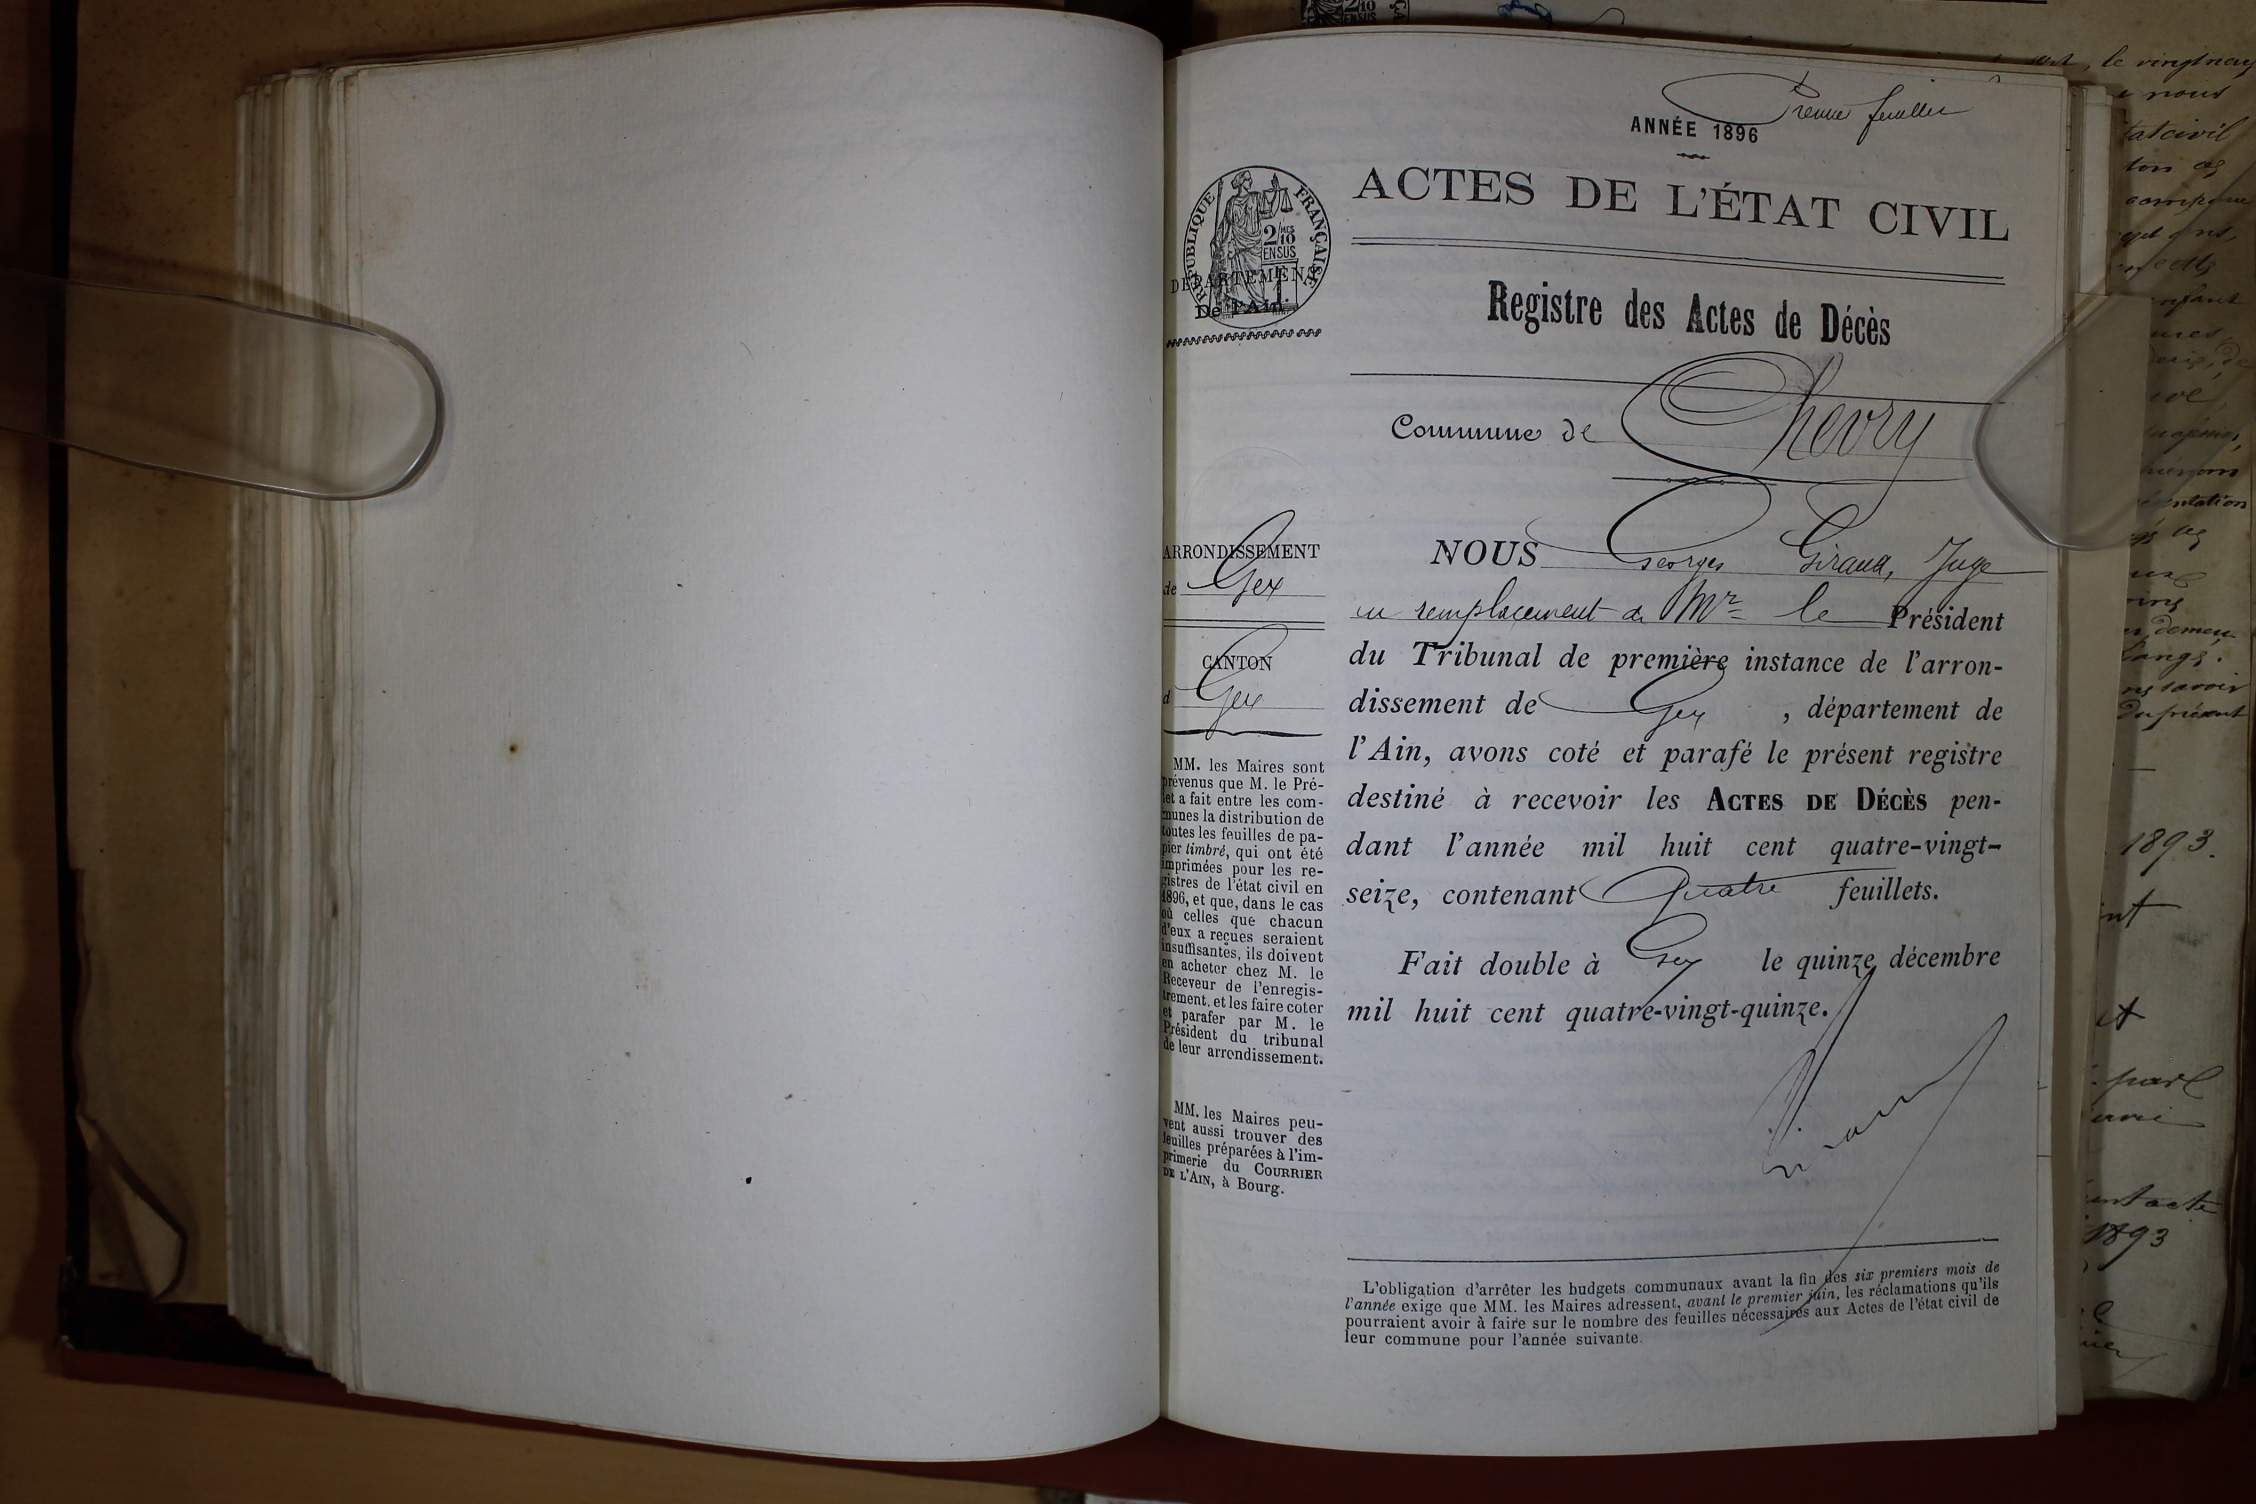 Premier feuillet
ANNÉE 1896
ACTES DE L'ÉTAT CIVIL
RÉPUBLIQUE FRANÇAISE
2/10 MES
EN SUS
DÉPARTEMENT
De l'Ain.
Registre des Actes de Décès
Commune de Chevry
ARRONDISSEMENT
de Gex
CANTON
d Gex
MM. les Maires sont
prévenus que M. le Pré-
fet a fait entre les com-
munes la distribution de
toutes les feuilles de pa-
pier timbré, qui ont été
imprimées pour les re-
gistres de l'état civil en
1896, et que, dans le cas
où celles que chacun
d'eux a reçues seraient
insuffisantes, ils doivent
en acheter chez M. le
Receveur de l'enregis-
trement, et les faire coter
et parafer par M. le
Président du tribunal
de leur arrondissement.
MM. les Maires peu-
vent aussi trouver des
feuilles préparées à l'im-
primerie du COURRIER
DE L'AIN, à Bourg.
NOUS Georges Giraud, Juge
en remplacement de Mr le Président
du Tribunal de première instance de l'arron-
dissement de Gex, département de
l'Ain, avons coté et parafé le présent registre
destiné à recevoir les ACTES DE DÉCÈS pen-
dant l'année mil huit cent quatre-vingt-
seize, contenant Quatre feuillets.
Fait double à Gex le quinze décembre
mil huit cent quatre-vingt-quinze.
L'obligation d'arrêter les budgets communaux avant la fin des six premiers mois de
l'année exige que MM. les Maires adressent, avant le premier juin, les réclamations qu'ils
pourraient avoir à faire sur le nombre des feuilles nécessaires aux Actes de l'état civil de
leur commune pour l'année suivante.
le vingt neuf
nous
tat civil
1893.
1893